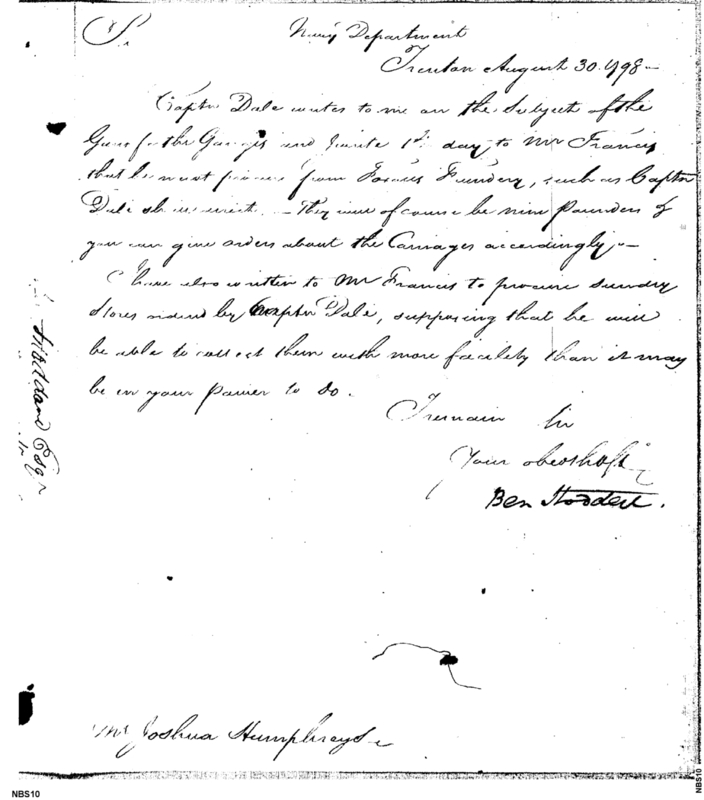 Navy Department
Trenton August 30. 1798 –
Captn Dale writes to me on the Subject of the
Guns for the Ganges and I write 1st day, to Mr Francis
that he must procure from Foxcis Fundery, such as Captn
Dale — They will of course be nine Pounders &
you can give orders about the Carriages accordingly –
I have also written to Mr Francis to procure sundry
Stores by Captn Dale, supposing that he will
be able to collect them with more facility than it may
be in your Power to do.
I remain Sir
Your obed
Ben Stoddert.
Mr Joshua Humphreys
Stoddard Esqr
NBS10
NBS10